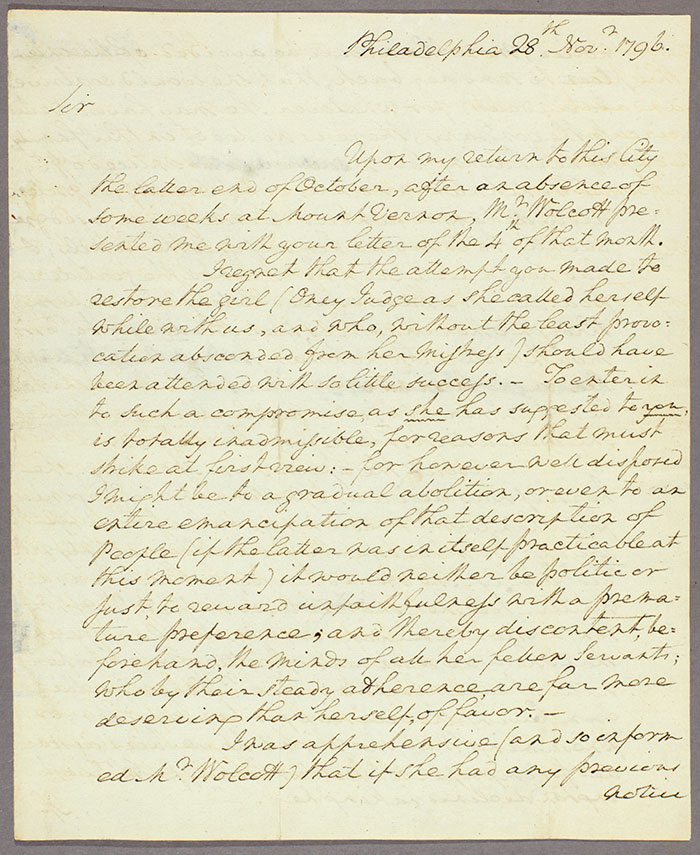 Philadelphia 28th. Novr. 1796.
Sir
Upon my return to this City
the latter end of October, after an absence of
some weeks at Mount Vernon, Mr. Wolcott pre-
sented me with your letter of the 4th of that month.
I regret that the attempt you made to
restore the girl (Oney Judge as she called herself
while with us, and who, without the least provo-
cation absconded from her Mistress) should have
been attended with so little success. — To enter in
to such a compromise as she has suggested to you,
is totally inadmissible, for reasons that must
strike at first view: — for however well disposed
I might be to a gradual abolition, or even to an
entire emancipation of that description of
People (if the latter was in itself practicable at
this moment) it would neither be politic or
just, to reward unfaithfulness with a prema-
ture preference; and thereby discontent, be-
forehand, the minds of all her fellow Servants;
who by their steady adherence, are far more
deserving than herself, of favor. —
I was apprehensive (and so inform
ed Mr. Wolcott) that if she had any previous
notice